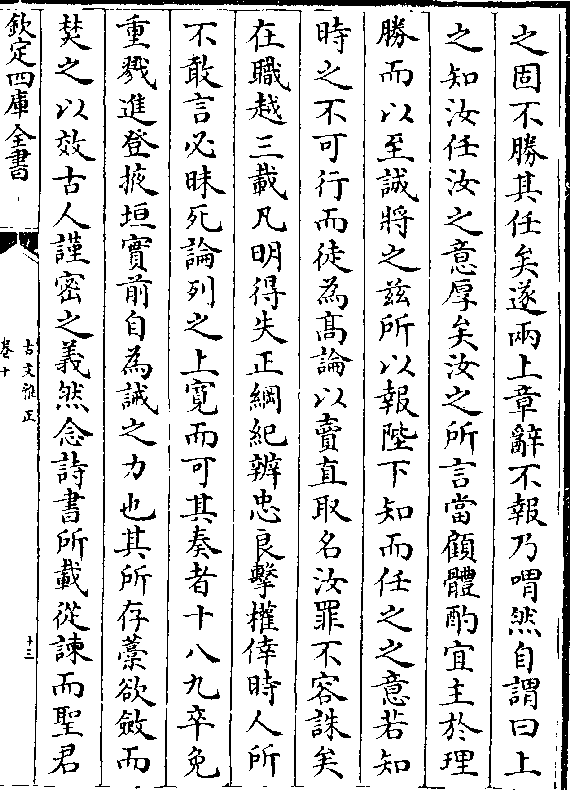 之固不勝其任矣遂兩上章辭不報乃喟然自謂曰上
之知汝任汝之意厚矣汝之所言當顧體酌宜主於理
勝而以至誠將之兹所以報陛下知而任之之意若知
時之不可行而徒為髙論以賣直取名汝罪不容誅矣
在職越三載凡明得失正綱紀辨忠良擊權倖時人所
不敢言必昧死論列之上寛而可其奏者十八九卒免
重戮進登掖垣實前自為誠之力也其所存藁欲斂而
焚之以效古人謹密之義然念詩書所載從諫而聖君
欽定四庫全書
古文雅正
卷十
十三